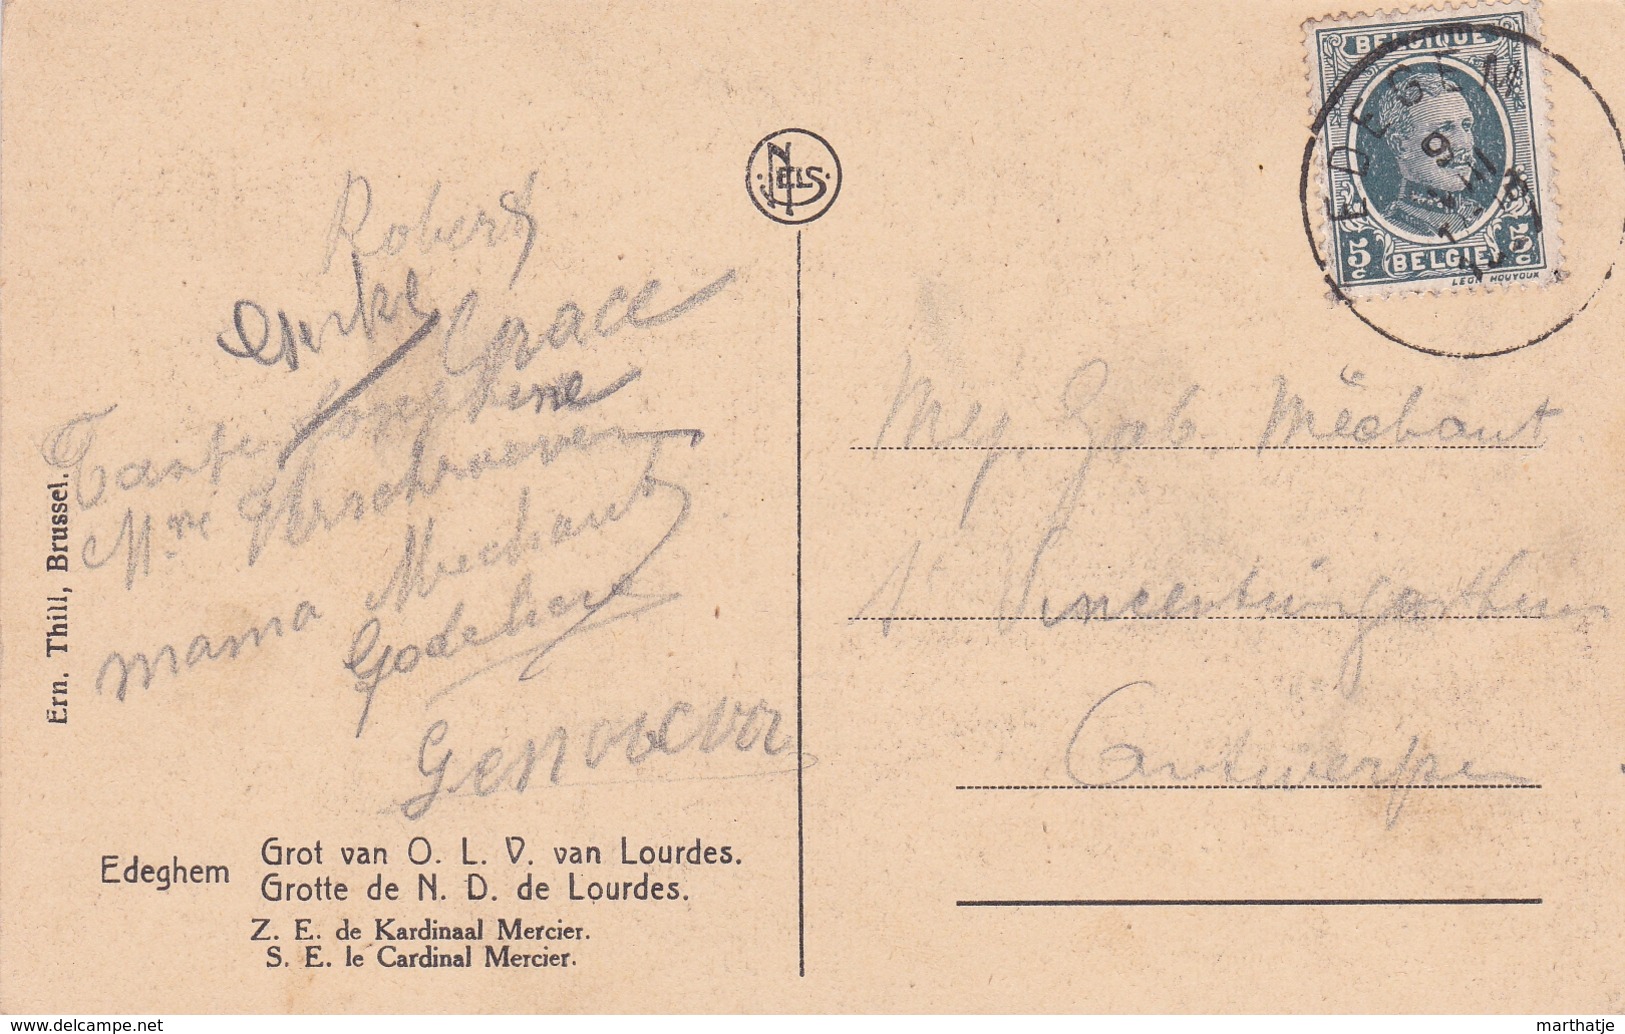 BELGIQUE
EDEGEM
9
5c
5c
BELGIE
LEON HOUYOUX
NELS
Robert
Gracе
Tante Josephine
Mme Verschraeven
mama Mechant
Godelieve
Genoveva
Mej. Gab. Mèchant
St Vincentiusgasthuis
Antwerpen
Ern. Thill, Brussel.
Edeghem
Grot van O. L. V. van Lourdes.
Grotte de N. D. de Lourdes.
Z. E. de Kardinaal Mercier.
S. E. le Cardinal Mercier.
www.delcampe.net
marthatje